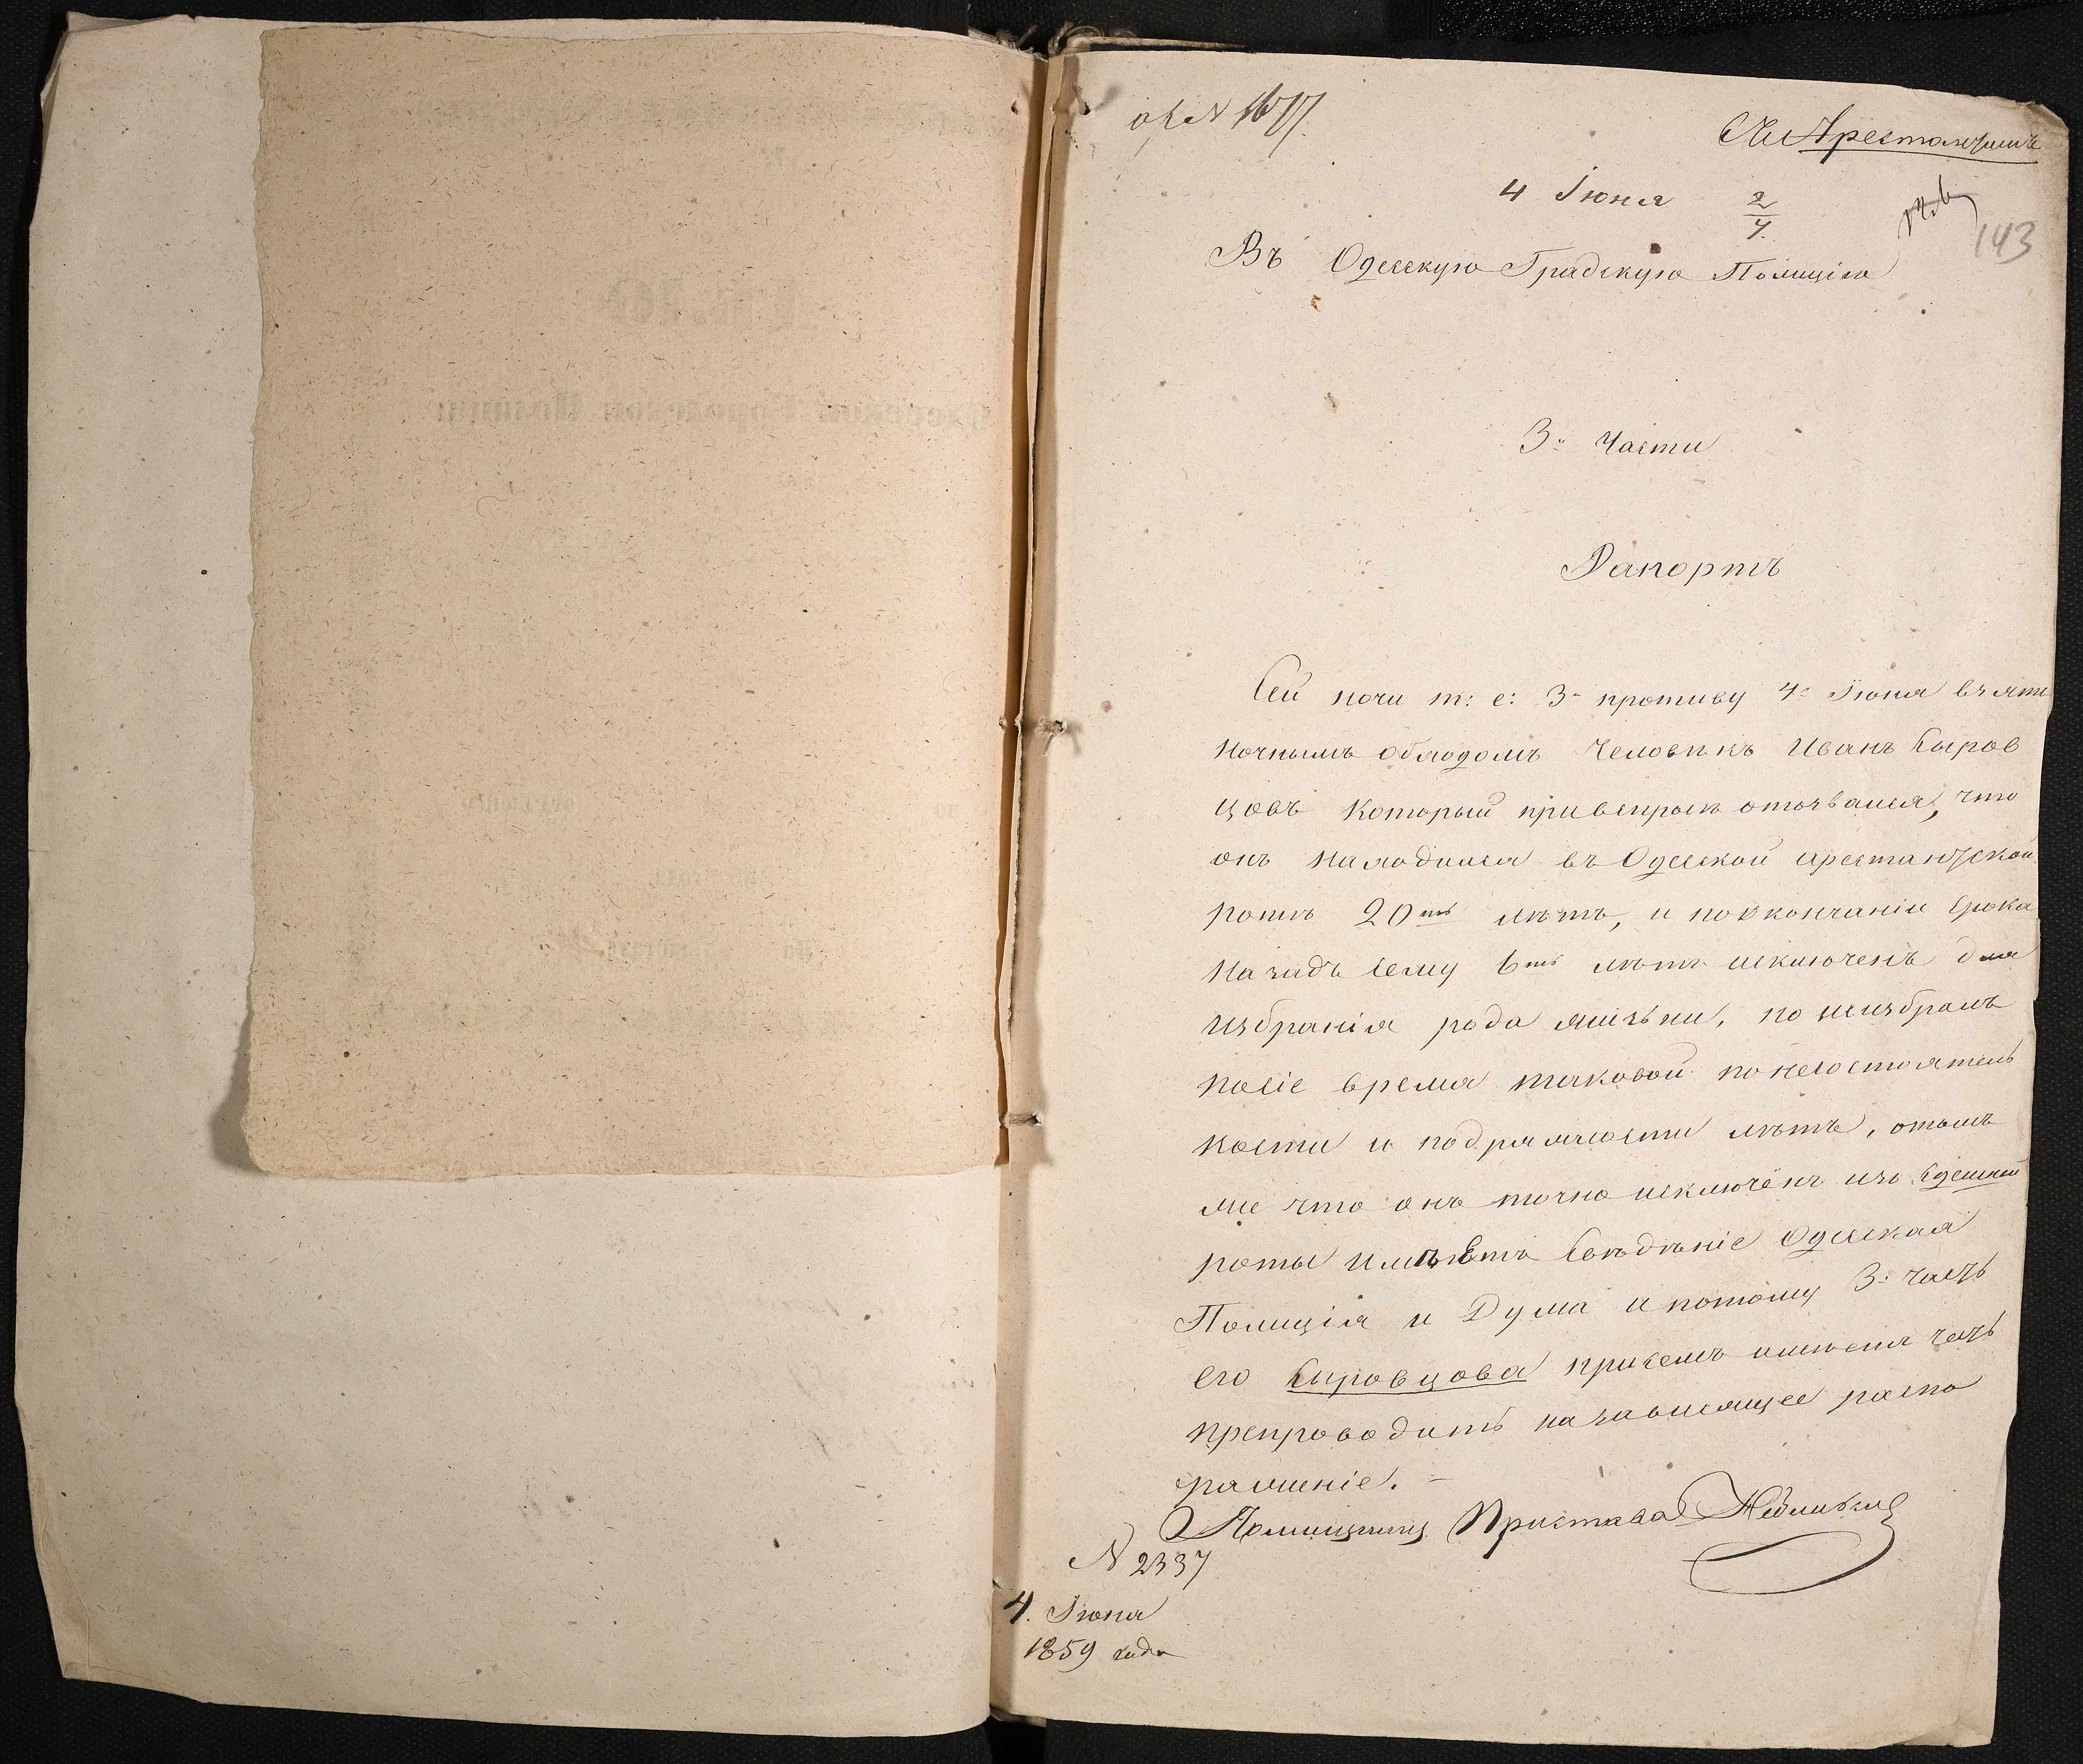 Съ Арестантомъ
4 Іюня 2/4
143
Въ Одесскую Градскую Полицію
3й Части
Рапортъ
Сей ночи т: е: 3го противу 4го Іюня взятъ
ночнымъ обходомъ человѣкъ Иванъ Сыров
цовъ который при вспросѣ отозвался, что
онъ находился въ Одесской арестантской
ротѣ 20ть лѣтъ, и по окончаніи срока
назадъ сему 6ть лѣтъ исключенъ для
избранія рода жизни, но не избралъ
по сіе время таковой по несостоятель
ности и по дряхлости лѣтъ, о томъ
же что онъ точно исключёнъ изъ здешней
роты имѣетъ свѣдѣніе Одесская
Полиція и Дума и потому 3я часть
его Сыровцова при семъ имѣетъ честь
препроводить на зависящее распо
ряженіе. –
Помощникъ Пристава
N 2337
4. Іюня
1859 года